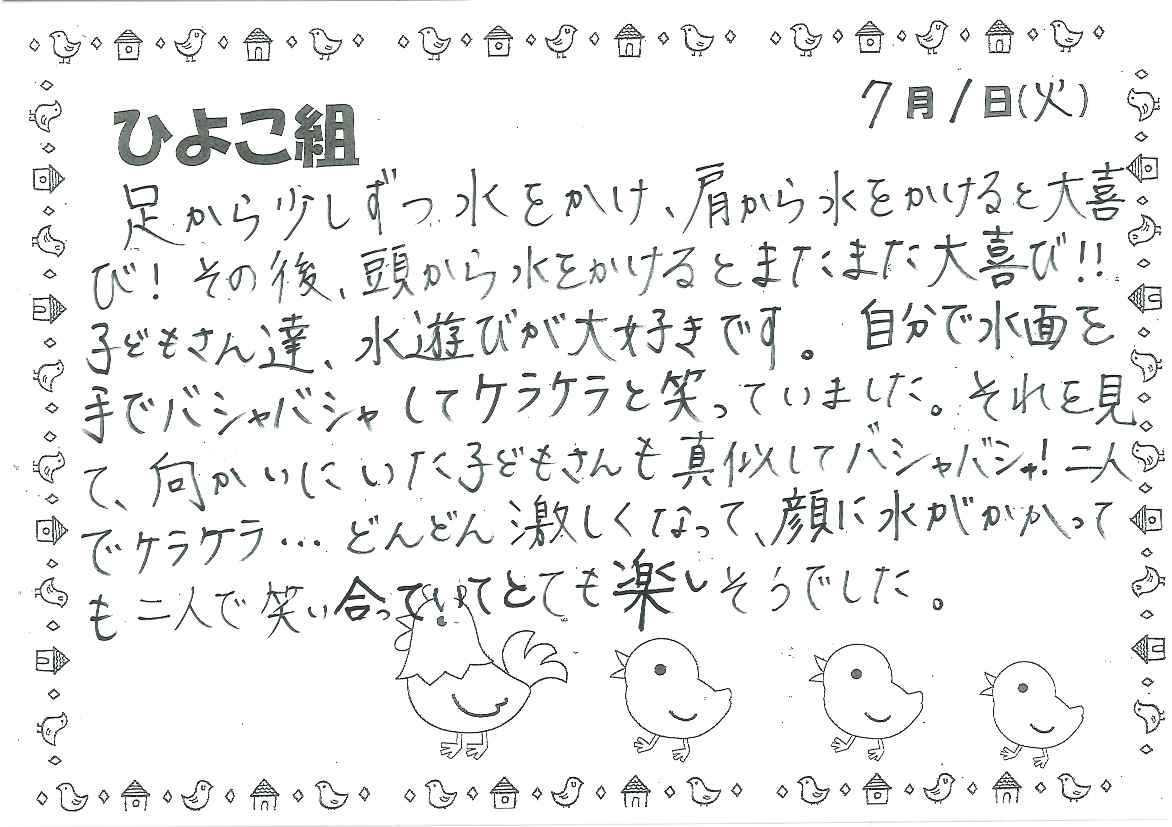 7月1日(火)
ひよこ組
足から少しずつ水をかけ、肩から水をかけると大喜
び!その後、頭から水をかけるとまたまた大喜び!!
子どもさん達、水遊びが大好きです。自分で水面を
手でバシャバシャしてケラケラと笑っていました。それを見
て、向かいにいた子どもさんも真似してバシャバシャ!二人
でケラケラ…どんどん激しくなって、顔に水がかかって
も二人で笑い合っていてとても楽しそうでした。